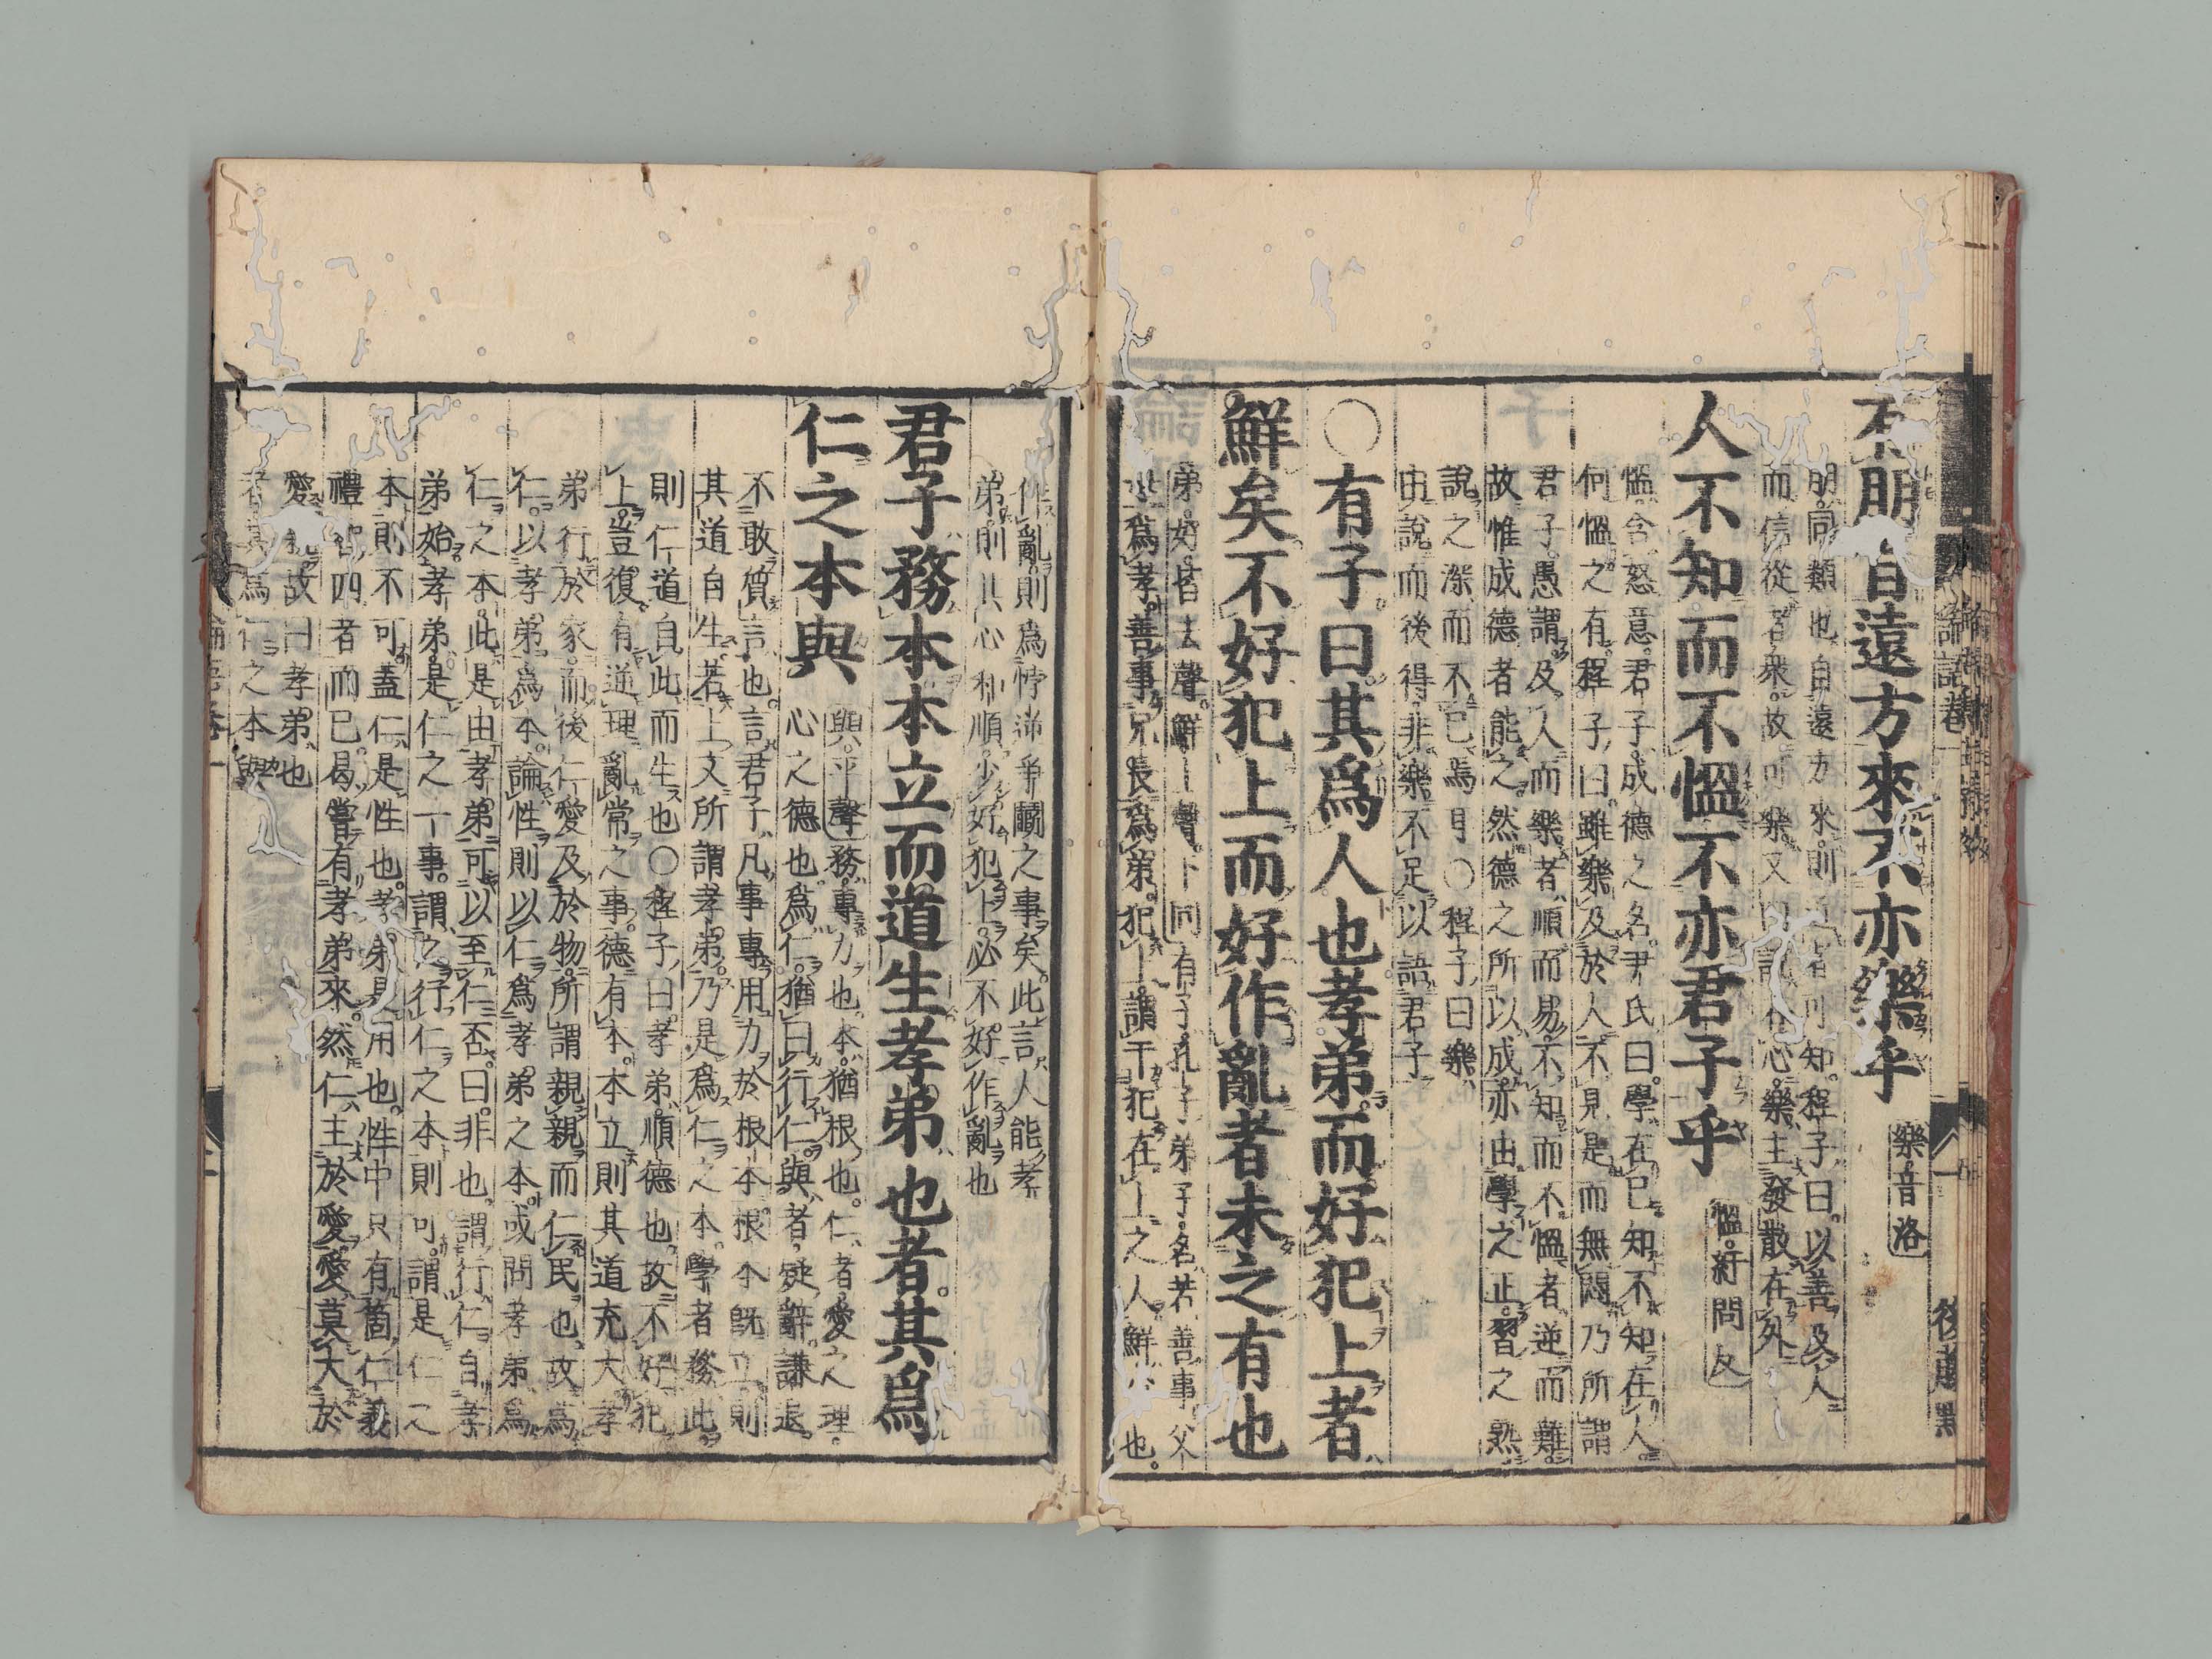 論語卷一
一
後藤點
有朋自遠方來不亦樂乎 樂音洛
朋同類也自遠方來則近者可知程子曰以善及人
而信從者衆故可樂又曰說在心樂主發散在外
人不知而不慍不亦君子乎 慍紆問反
慍含怒意君子成德之名尹氏曰學在已知不知在人
何慍之有程子曰雖樂及於人不見是而無悶乃所謂
君子愚謂及人而樂者順而易不知而不慍者逆而難
故惟成德者能之然德之所以成亦由學之正習之熟
說之深而不已焉耳○程子曰樂
由說而後得非樂不足以語君子
○有子曰其爲人也孝弟而好犯上者
鮮矣不好犯上而好作亂者未之有也
弟好皆去聲鮮上聲下同 有子孔子弟子名若善事父
母爲孝善事兄長爲弟犯上謂干犯在上之人鮮少也
作亂則爲悖逆爭鬭之事矣此言人能孝
弟則其心和順少好犯上必不好作亂也
君子務本本立而道生孝弟也者其爲
仁之本與
與平聲 務專力也本猶根也仁者愛之理
心之德也爲仁猶曰行仁與者疑辭謙退
不敢質言也言君子凡事專用力於根本根本既立則
其道自生若上文所謂孝弟乃是爲仁之本學者務此
則仁道自此而生也○程子曰孝弟順德也故不好犯
上豈復有逆理亂常之事德有本本立則其道充大孝
弟行於家而後仁愛及於物所謂親親而仁民也故爲
仁以孝弟爲本論性則以仁爲孝弟之本或問孝弟爲
仁之本此是由孝弟可以至仁否曰非也謂行仁自孝
弟始孝弟是仁之一事謂之行仁之本則可謂是仁之
本則不可蓋仁是性也孝弟是用也性中只有箇仁義
禮智四者而已曷嘗有孝弟來然仁主於愛愛莫大於
愛親故曰孝弟也
者其爲仁之本與
論語卷一
二